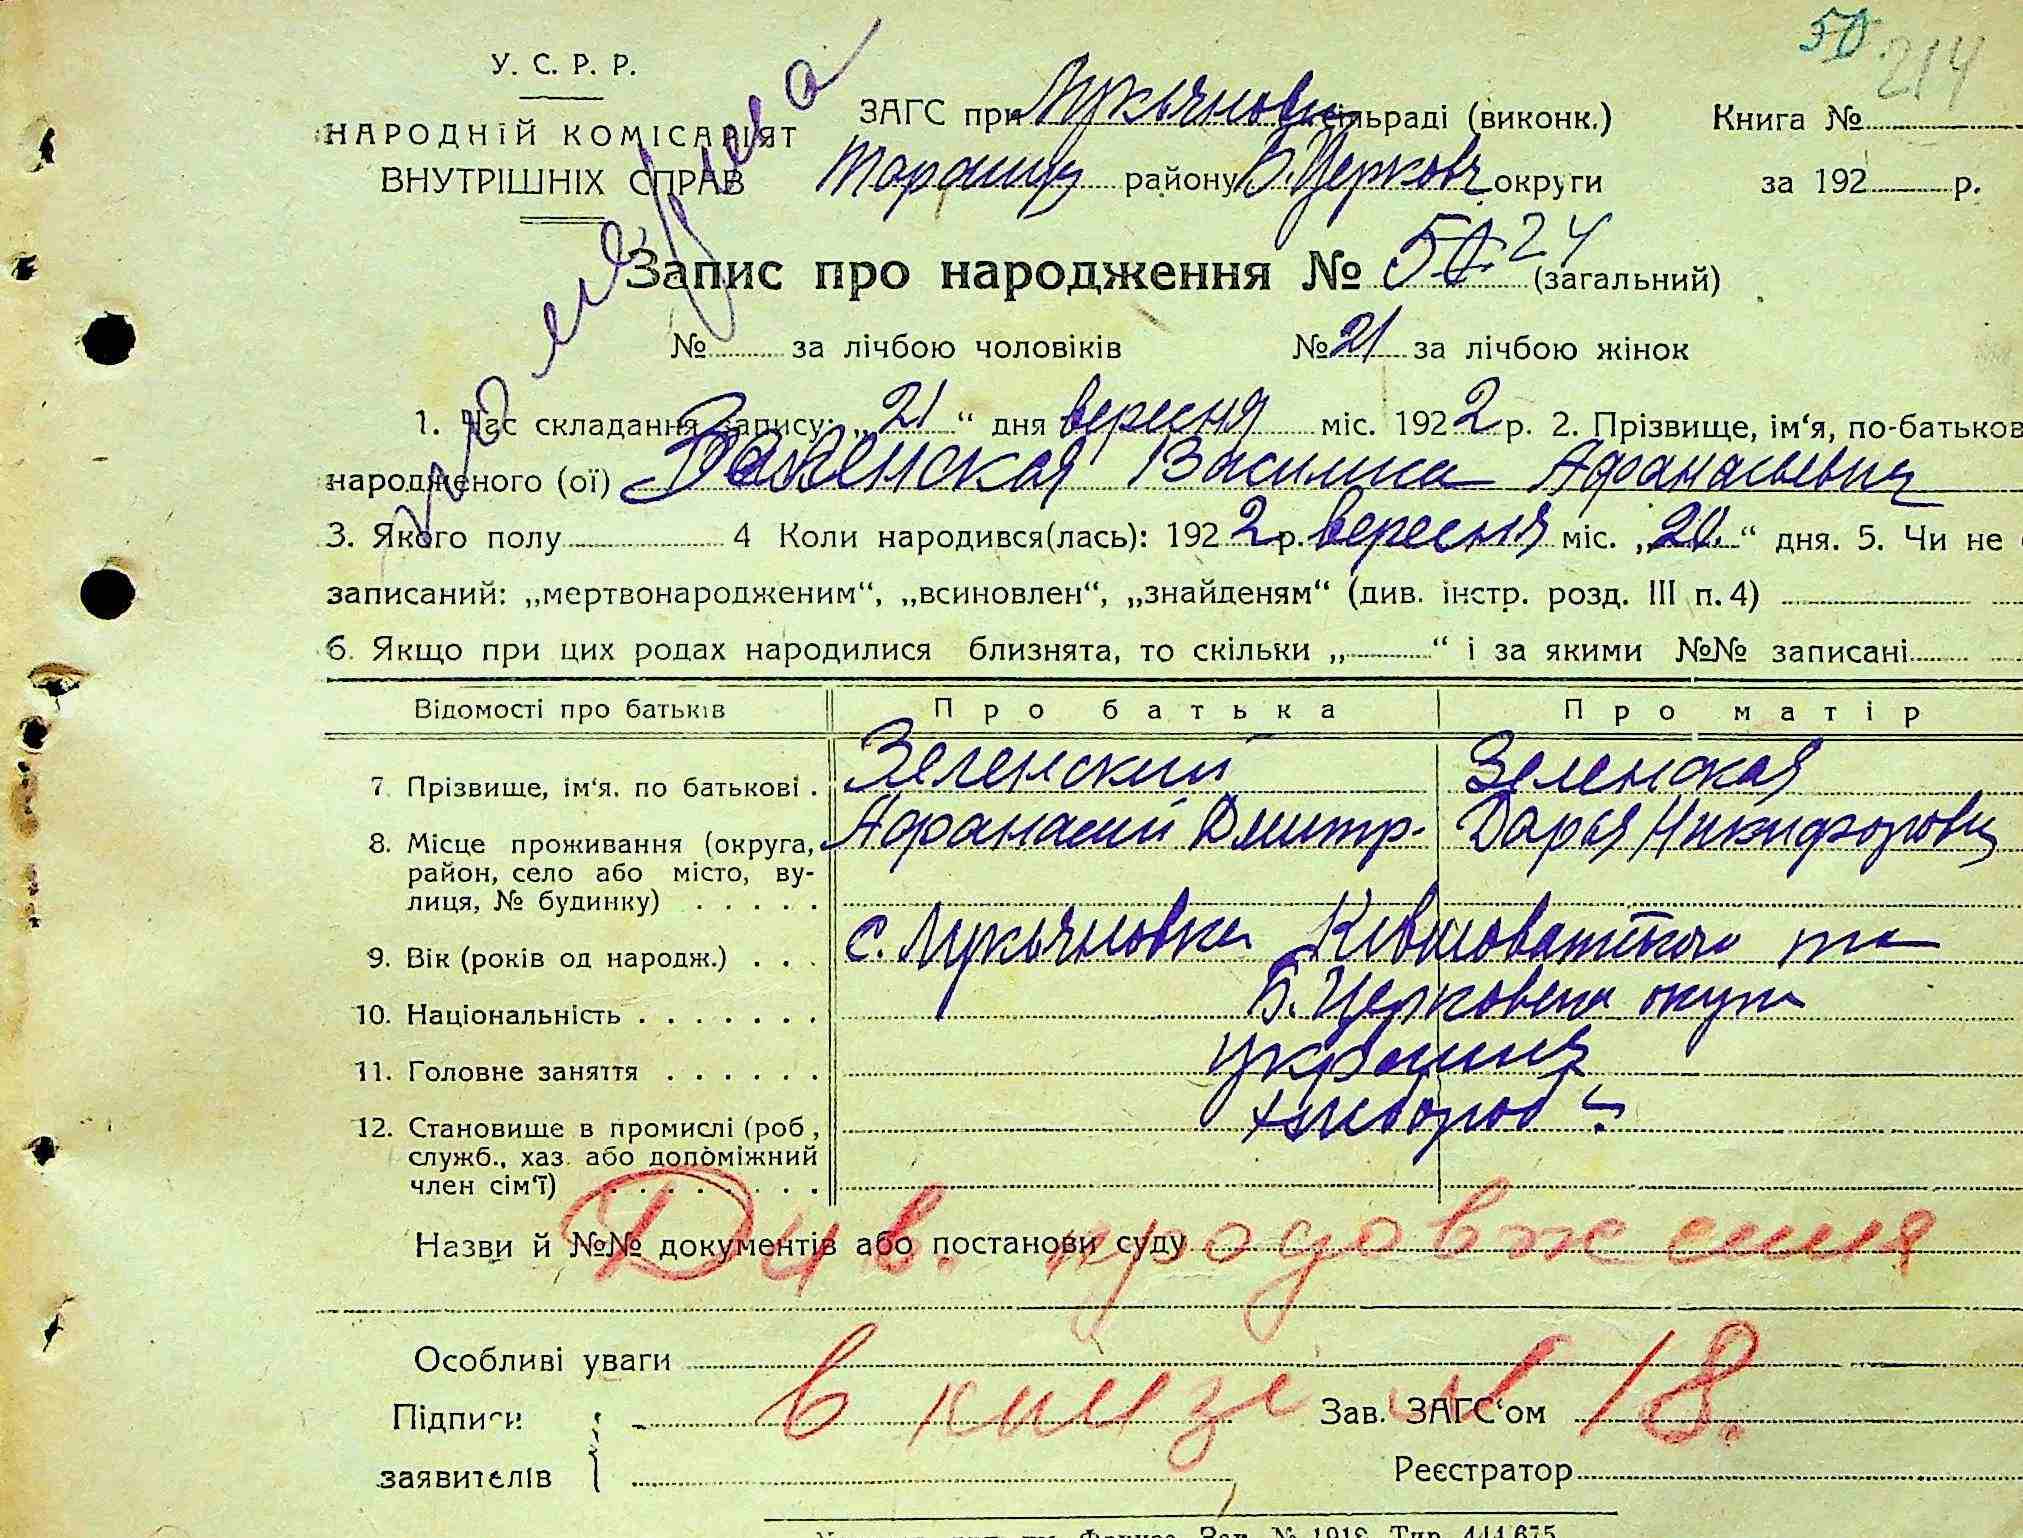 50 214
У. С. Р. Р.
НАРОДНІЙ КОМІСАРІЯТ
ВНУТРІШНІХ СПРАВ
ЗАГС при Лукьянов сільраді (виконк.)
Книга №
Таращ району Б. Церков округи
за 192 р.
Запис про народження № 50 24 (загальний)
№ за лічбою чоловіків № 21 за лічбою жінок
1. Час складання запису: „21“ дня вересня міс. 1922 р. 2. Прізвище, ім‘я, по-батьков
народженого (ої) Зеленская Василиса Афанасьевна
3. Якого полу 4 Коли народився(лась): 1922 р. вересня міс. „20.“ дня. 5. Чи не
записаний: „мертвонародженим“, „всиновлен“, „знайденям“ (див. інстр. розд. III п. 4)
6. Якщо при цих родах народилися близнята, то скільки „ “ і за якими №№ записані
Відомості про батьків Про батька Про матір
7. Прізвище, ім‘я, по батькові . Зеленский Зеленская
Афанасий Дмитр. Дарья Никифоровн
8. Місце проживання (округа,
район, село або місто, ву-
лиця, № будинку) . . . . .
с. Лукьяновка та
9. Вік (років од народж.) . . .
Б. Церковск округи
10. Національність . . . . . . .
11. Головне заняття . . . . . .
хлебороб
12. Становище в промислі (роб,
служб., хаз. або допоміжний
член сім‘ї) . . . . . . . .
Назви й №№ документів або постанови суду
Див. продовження
Особливі уваги
в книзі № 18.
Підписи
заявителів
Зав. ЗАГС‘ом
Реєстратор
Зак. № 1918 Тир. 444.675